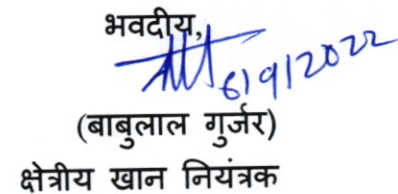 भवदीय,
6/9/2022
(बाबुलाल गुर्जर)
क्षेत्रीय खान नियंत्रक